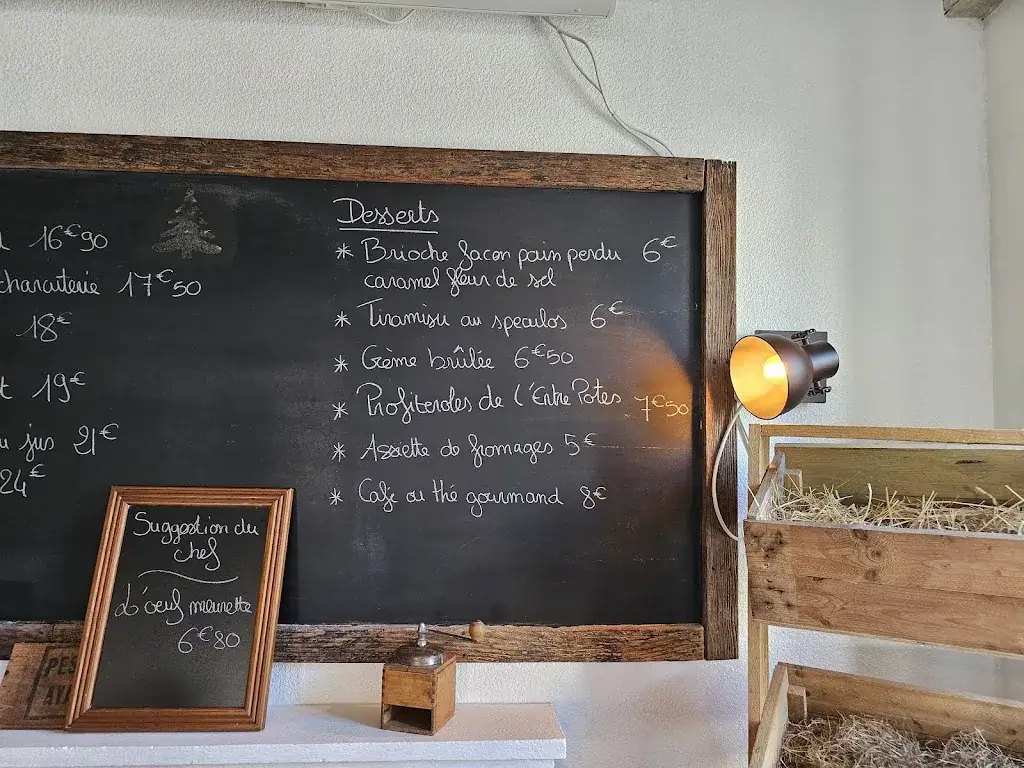 16€90
charcuterie 17€50
18€
19€
jus 21€
24€
Desserts
* Brioche facon pain perdu 6€
caramel fleur de sel
* Tiramisu au speculos 6€
* Crème brûlée 6€50
* Profiteroles de l'Entre Potes 7€50
* Assiette de fromages 5€
* Café ou thé gourmand 8€
Suggestion du
chef
L'oeuf meurette
6€80